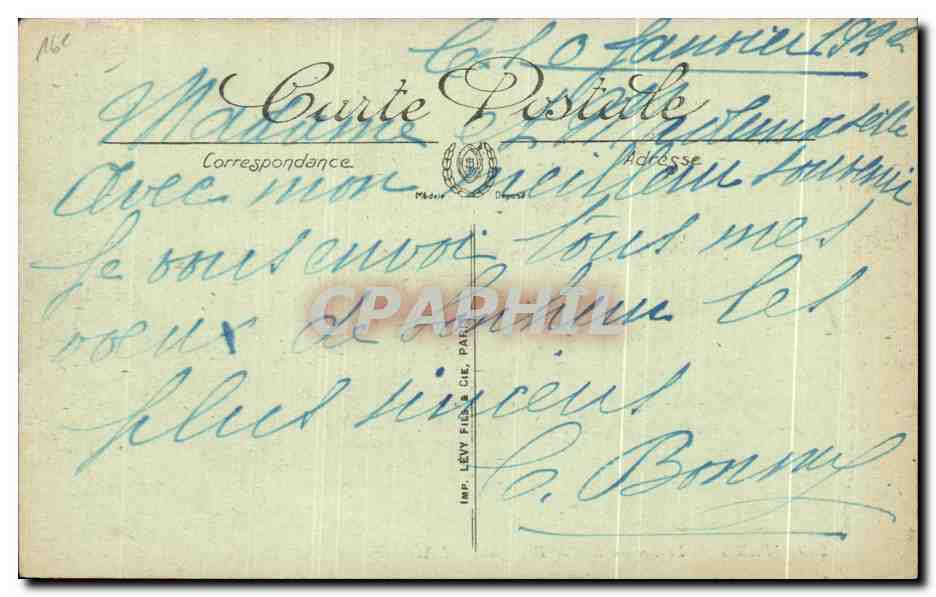 16e
Ce 10 Janvier 192
Carte Postale
Madame et Mademoiselle
Correspondance
Adresse
avec mon meilleur souvenir
Modèle Déposé
Je vous envoi tous mes
CPAPHIL
voeux de bonheur les
plus sincers
IMP. LÉVY FILS & CIE, PAR